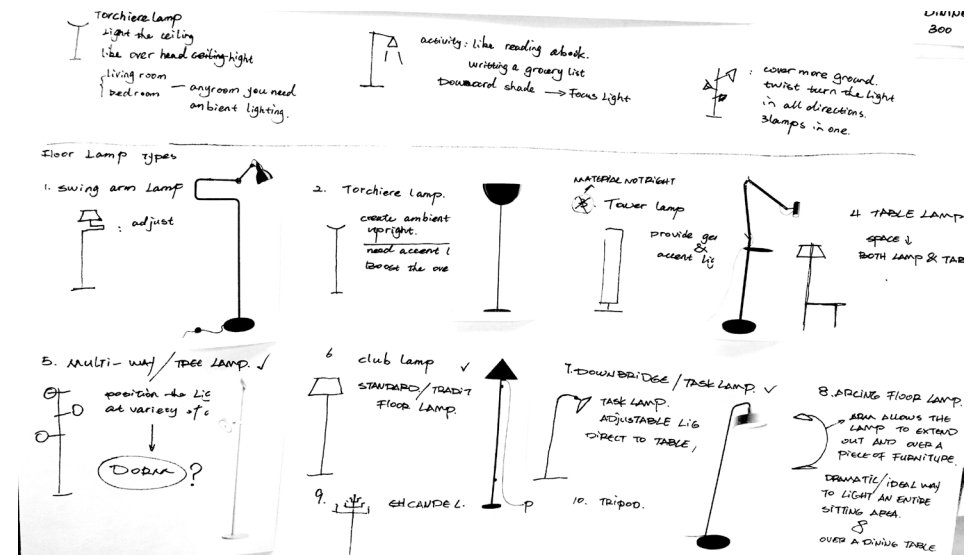 Torchiere lamp
Light the ceiling
like over head ceiling hight
living room
bedroom — anyroom you need
ambient lighting.
activity: like reading a book.
writting a grocery list
Downward shade → Focus Light
: cover more ground.
twist turn the light
in all directions.
3lamps in one.
DINING
300
Floor Lamp Types
1. Swing arm Lamp
: adjust
2. Torchiere Lamp.
create ambient
upright.
need accent l
Boost the ove
MATERIAL NOT RIGHT
3. Tower lamp
provide gen
&
accent lig
4 TABLE LAMP
SPACE ↓
BOTH LAMP & TAB
5. Multi-way/TREE LAMP. ✓
position the Lig
at variety of
DORM ?
6 club lamp ✓
STANDARD/TRADIT
FLOOR LAMP.
7. DOWNBRIDGE/TASK LAMP. ✓
TASK LAMP.
ADJUSTABLE LIG
DIRECT TO TABLE,
8. ARCING FLOOR LAMP.
ARM ALLOWS THE
LAMP TO EXTEND
OUT AND OVER A
PIECE OF FURNITURE.
DRAMATIC/IDEAL WAY
TO LIGHT AN ENTIRE
SITTING AREA.
&
OVER A DINING TABLE
9.
10. TRIPOD.